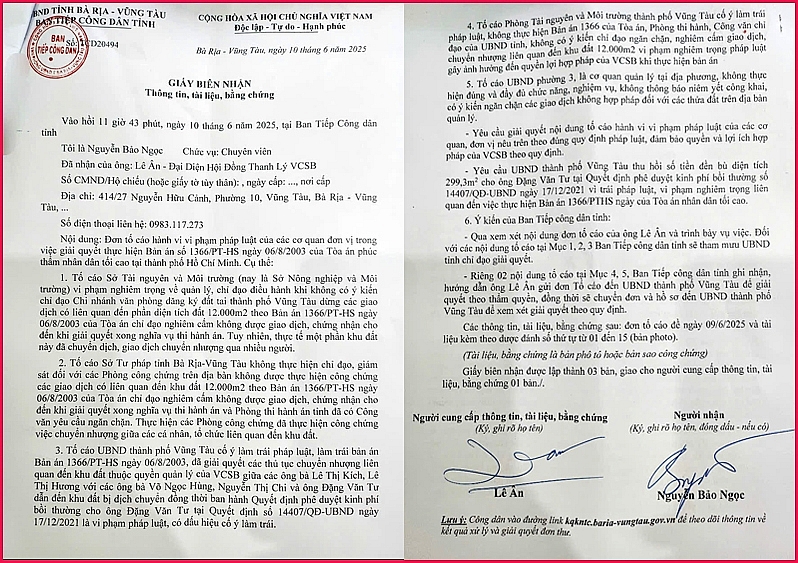 UBND TỈNH BÀ RỊA - VŨNG TÀU
BAN TIẾP CÔNG DÂN TỈNH
BAN
TIẾP CÔNG DÂN
Số: TCD20494
CỘNG HÒA XÃ HỘI CHỦ NGHĨA VIỆT NAM
Độc lập - Tự do - Hạnh phúc
Bà Rịa - Vũng Tàu, ngày 10 tháng 6 năm 2025
GIẤY BIÊN NHẬN
Thông tin, tài liệu, bằng chứng
Vào hồi 11 giờ 43 phút, ngày 10 tháng 6 năm 2025, tại Ban Tiếp Công dân
tỉnh
Tôi là Nguyễn Bảo Ngọc Chức vụ: Chuyên viên
Đã nhận của ông: Lê Ân - Đại Diện Hội Đồng Thanh Lý VCSB
Số CMND/Hộ chiếu (hoặc giấy tờ tùy thân): , ngày cấp: ..., nơi cấp
Địa chỉ: 414/27 Nguyễn Hữu Cảnh, Phường 10, Vũng Tàu, Bà Rịa - Vũng
Tàu, ...
Số điện thoại liên hệ: 0983.117.273
Nội dung: Đơn tố cáo hành vi vi phạm pháp luật của các cơ quan đơn vị trong
việc giải quyết thực hiện Bản án số 1366/PT-HS ngày 06/8/2003 của Tòa án phúc
thẩm nhân dân tối cao tại thành phố Hồ Chí Minh. Cụ thể:
1. Tố cáo Sở Tài nguyên và Môi trường (nay là Sở Nông nghiệp và Môi
trường) vi phạm nghiêm trọng về quản lý, chỉ đạo điều hành khi không có ý kiến
chỉ đạo Chi nhánh văn phòng đăng ký đất tai thành phố Vũng Tàu dừng các giao
dịch có liên quan đến phần diện tích đất 12.000m2 theo Bản án 1366/PT-HS ngày
06/8/2003 của Tòa án chỉ đạo nghiêm cấm không được giao dịch, chứng nhận cho
đến khi giải quyết xong nghĩa vụ thi hành án. Tuy nhiên, thực tế một phần khu đất
này đã chuyển dịch, giao dịch chuyển nhượng qua nhiều người.
2. Tố cáo Sở Tư pháp tỉnh Bà Rịa-Vũng Tàu không thực hiện chỉ đạo, giám
sát đối với các Phòng công chứng trên địa bàn không được thực hiện công chứng
các giao dịch có liên quan đến khu đất 12.000m2 theo Bản án 1366/PT-HS ngày
06/8/2003 của Tòa án chỉ đạo nghiêm cấm không được giao dịch, chứng nhận cho
đến khi giải quyết xong nghĩa vụ thi hành án và Phòng thi hành án tỉnh đã có Công
văn yêu cầu ngăn chặn. Thực hiện các Phòng công chứng đã thực hiện công chứng
việc chuyển nhượng giữa các cá nhân, tổ chức liên quan đến khu đất.
3. Tố cáo UBND thành phố Vũng Tàu cố ý làm trái pháp luật, làm trái bản án
Bản án 1366/PT-HS ngày 06/8/2003, đã giải quyết các thủ tục chuyển nhượng liên
quan đến khu đất thuộc quyền quản lý của VCSB giữa các ông bà Lê Thị Kích, Lê
Thị Hương với các ông bà Võ Ngọc Hùng, Nguyễn Thị Chi và ông Đặng Văn Tư
dẫn đến khu đất bị dịch chuyển đồng thời ban hành Quyết định phê duyệt kinh phí
bồi thường cho ông Đặng Văn Tư tại Quyết định số 14407/QĐ-UBND ngày
17/12/2021 là vi phạm pháp luật, có dấu hiệu cố ý làm trái.
4. Tố cáo Phòng Tài nguyên và Môi trường thành phố Vũng Tàu cố ý làm trái
pháp luật, không thực hiện Bản án 1366 của Tòa án, Phòng thi hành, Công văn chỉ
đạo của UBND tỉnh, không có ý kiến chỉ đạo ngăn chặn, nghiêm cấm giao dịch,
chuyển nhượng liên quan đến khu đất 12.000m2 vi phạm nghiêm trọng pháp luật
gây ảnh hưởng đến quyền lợi hợp pháp của VCSB khi thực hiện án
5. Tố cáo UBND phường 3, là cơ quan quản lý tại địa phương, không thực
hiện đúng và đầy đủ chức năng, nghiệm vụ, không thông báo niêm yết công khai,
có ý kiến ngăn chặn các giao dịch không hợp pháp đối với các thửa đất trên địa bàn
quản lý.
- Yêu cầu giải quyết nội dung tố cáo hành vi vi phạm pháp luật của các cơ
quan, đơn vị nêu trên theo đúng quy định pháp luật, đảm bảo quyền và lợi ích hợp
pháp của VCSB theo quy định.
- Yêu cầu UBND thành phố Vũng Tàu thu hồi số tiền đền bù diện tích
299,3m² cho ông Đặng Văn Tư tại Quyết định phê duyệt kinh phí bồi thường số
14407/QĐ-UBND ngày 17/12/2021 vì trái pháp luật, vi phạm nghiêm trọng liên
quan đến việc thực hiện Bản án 1366/PTHS ngày của Tòa án nhân dân tối cao.
6. Ý kiến của Ban Tiếp công dân tỉnh:
- Qua xem xét nội dung đơn tố cáo của ông Lê Ân và trình bày vụ việc. Đối
với các nội dung tố cáo tại Mục 1, 2, 3 Ban Tiếp công dân tỉnh sẽ tham mưu UBND
tỉnh chỉ đạo giải quyết.
- Riêng 02 nội dung tố cáo tại Mục 4, 5, Ban Tiếp công dân tỉnh ghi nhận,
hướng dẫn ông Lê Ân gửi đơn Tố cáo đến UBND thành phố Vũng Tàu để giải
quyết theo thẩm quyền, đồng thời sẽ chuyển đơn và hồ sơ đến UBND thành phố
Vũng Tàu để xem xét giải quyết theo quy định.
Các thông tin, tài liệu, bằng chứng sau: đơn tố cáo đề ngày 09/6/2025 và tài liệu
kèm theo được đánh số thứ tự từ 01 đến 15 (bản photo).
(Tài liệu, bằng chứng là bản phô tô hoặc bản sao công chứng)
Giấy biên nhận được lập thành 03 bản, giao cho người cung cấp thông tin, tài
liệu, bằng chứng 01 bản./.
Người cung cấp thông tin, tài liệu, bằng chứng
(Ký, ghi rõ họ tên)
Lê Ân
Người nhận
(Ký, ghi rõ họ tên, đóng dấu - nếu có)
Nguyễn Bảo Ngọc
Lưu ý: Công dân vào đường link kqkntc.baria-vungtau.gov.vn để theo dõi thông tin về
kết quả xử lý và giải quyết đơn thư.